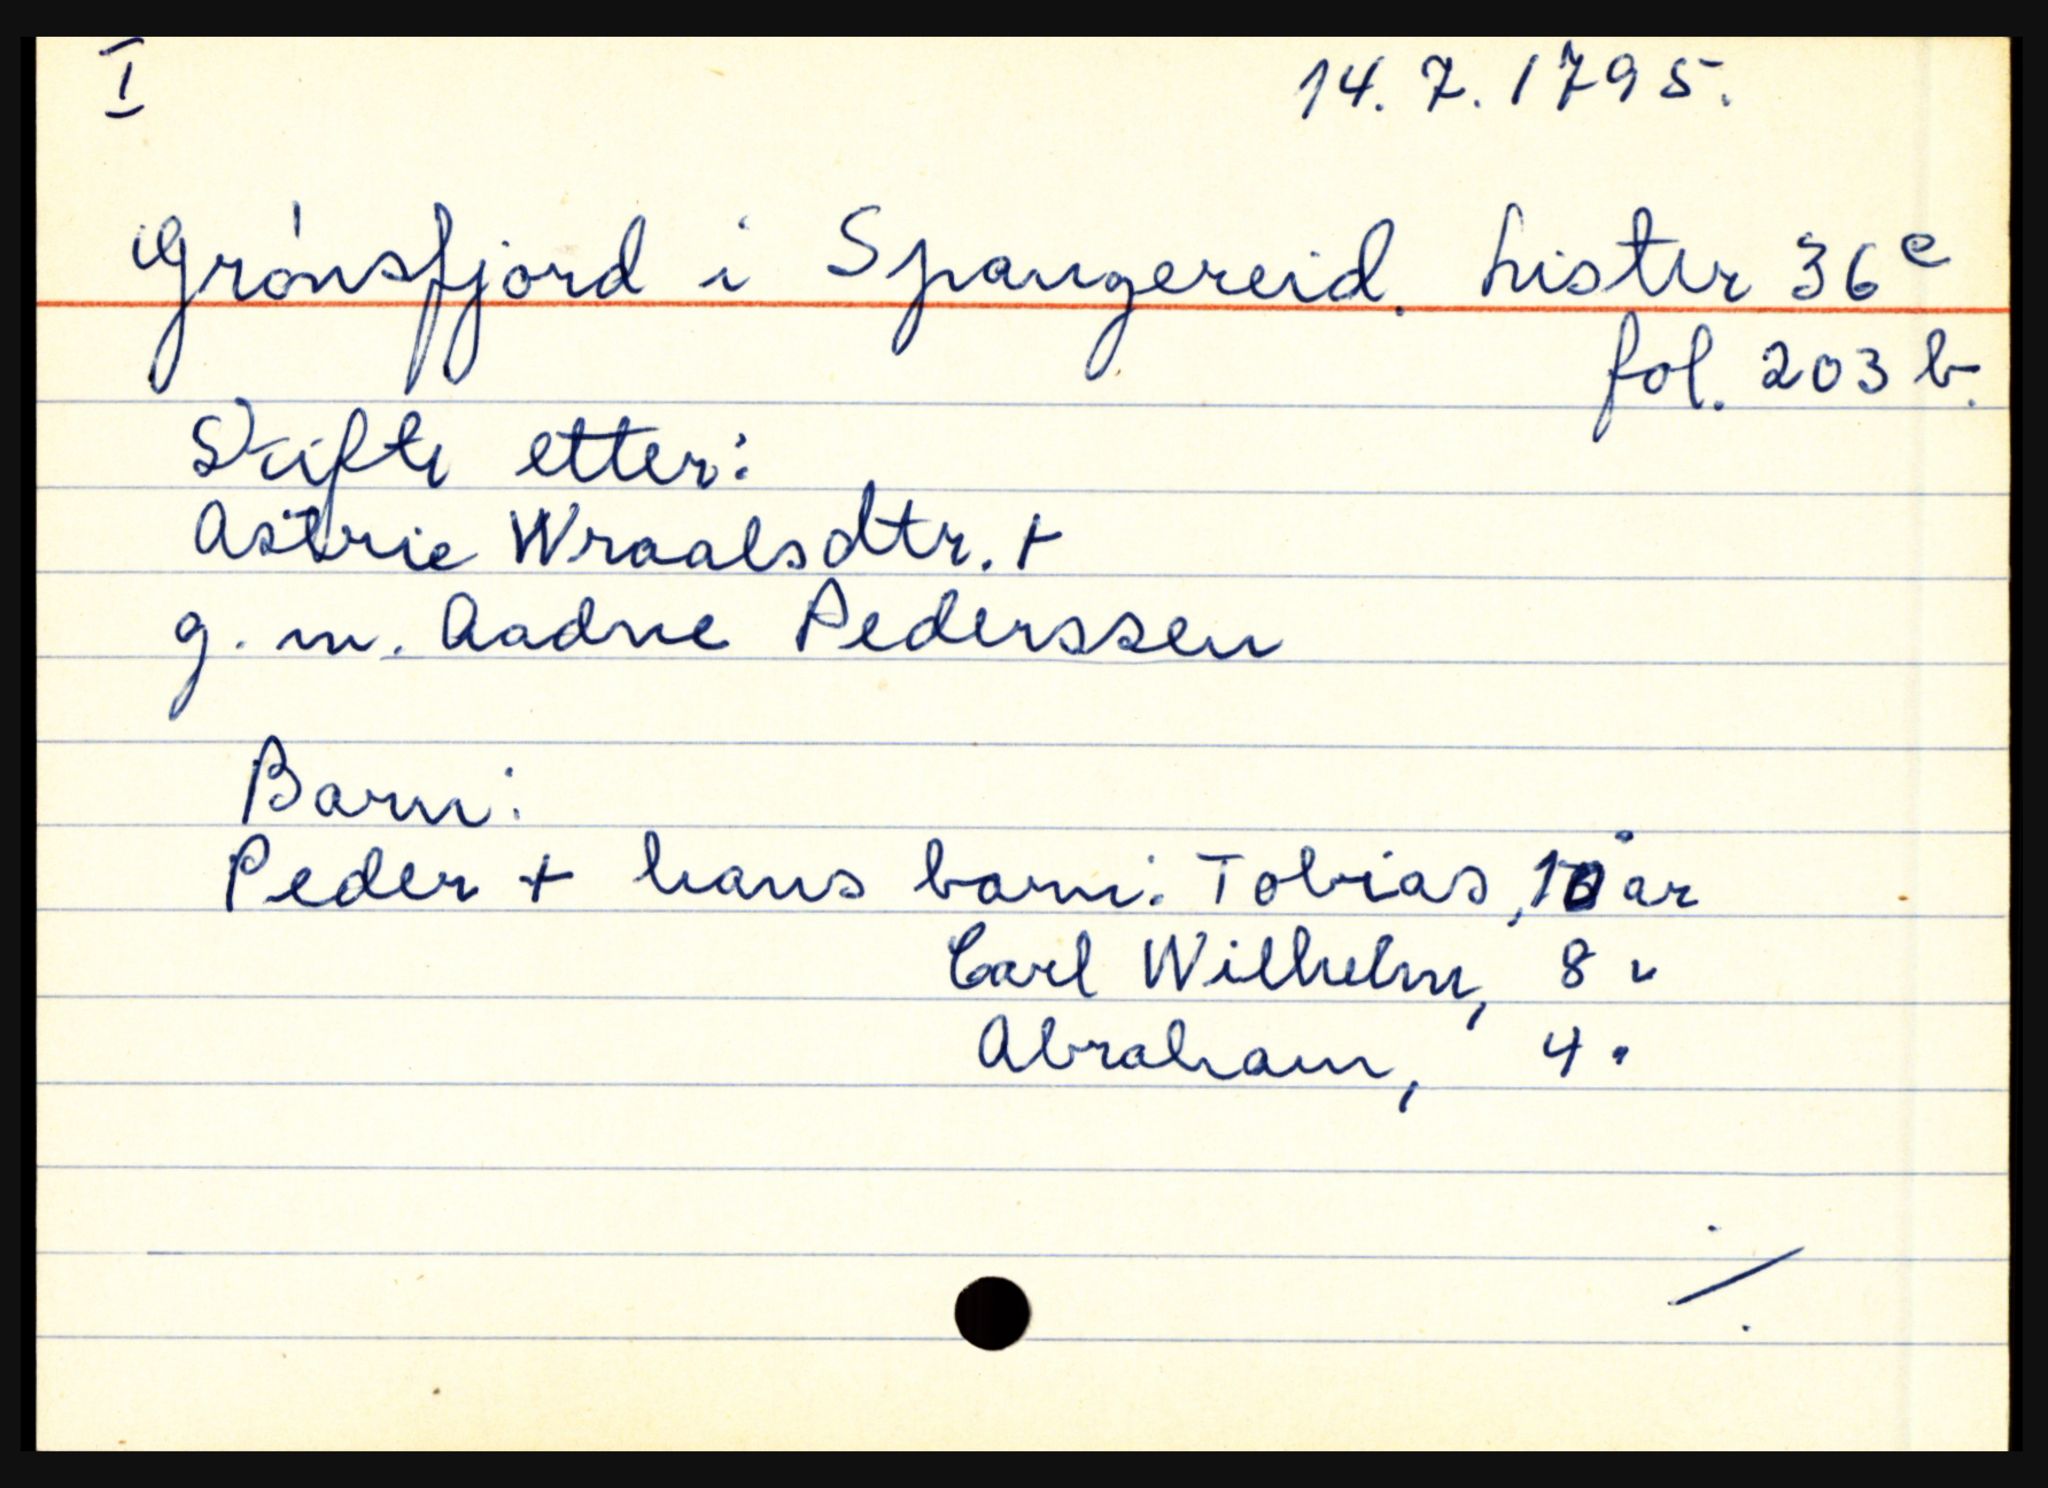 I 14.7.1795.
Grønsfjord i Spangereid. Lister 36e
fol. 203 b.
Skifte etter:
Astrie Wraalsdtr. +
g. m. Aadne Pederssen
Barn:
Peder + hans barn: Tobias, 10 år
Carl Wilhelm, 8 "
Abraham, 4 "